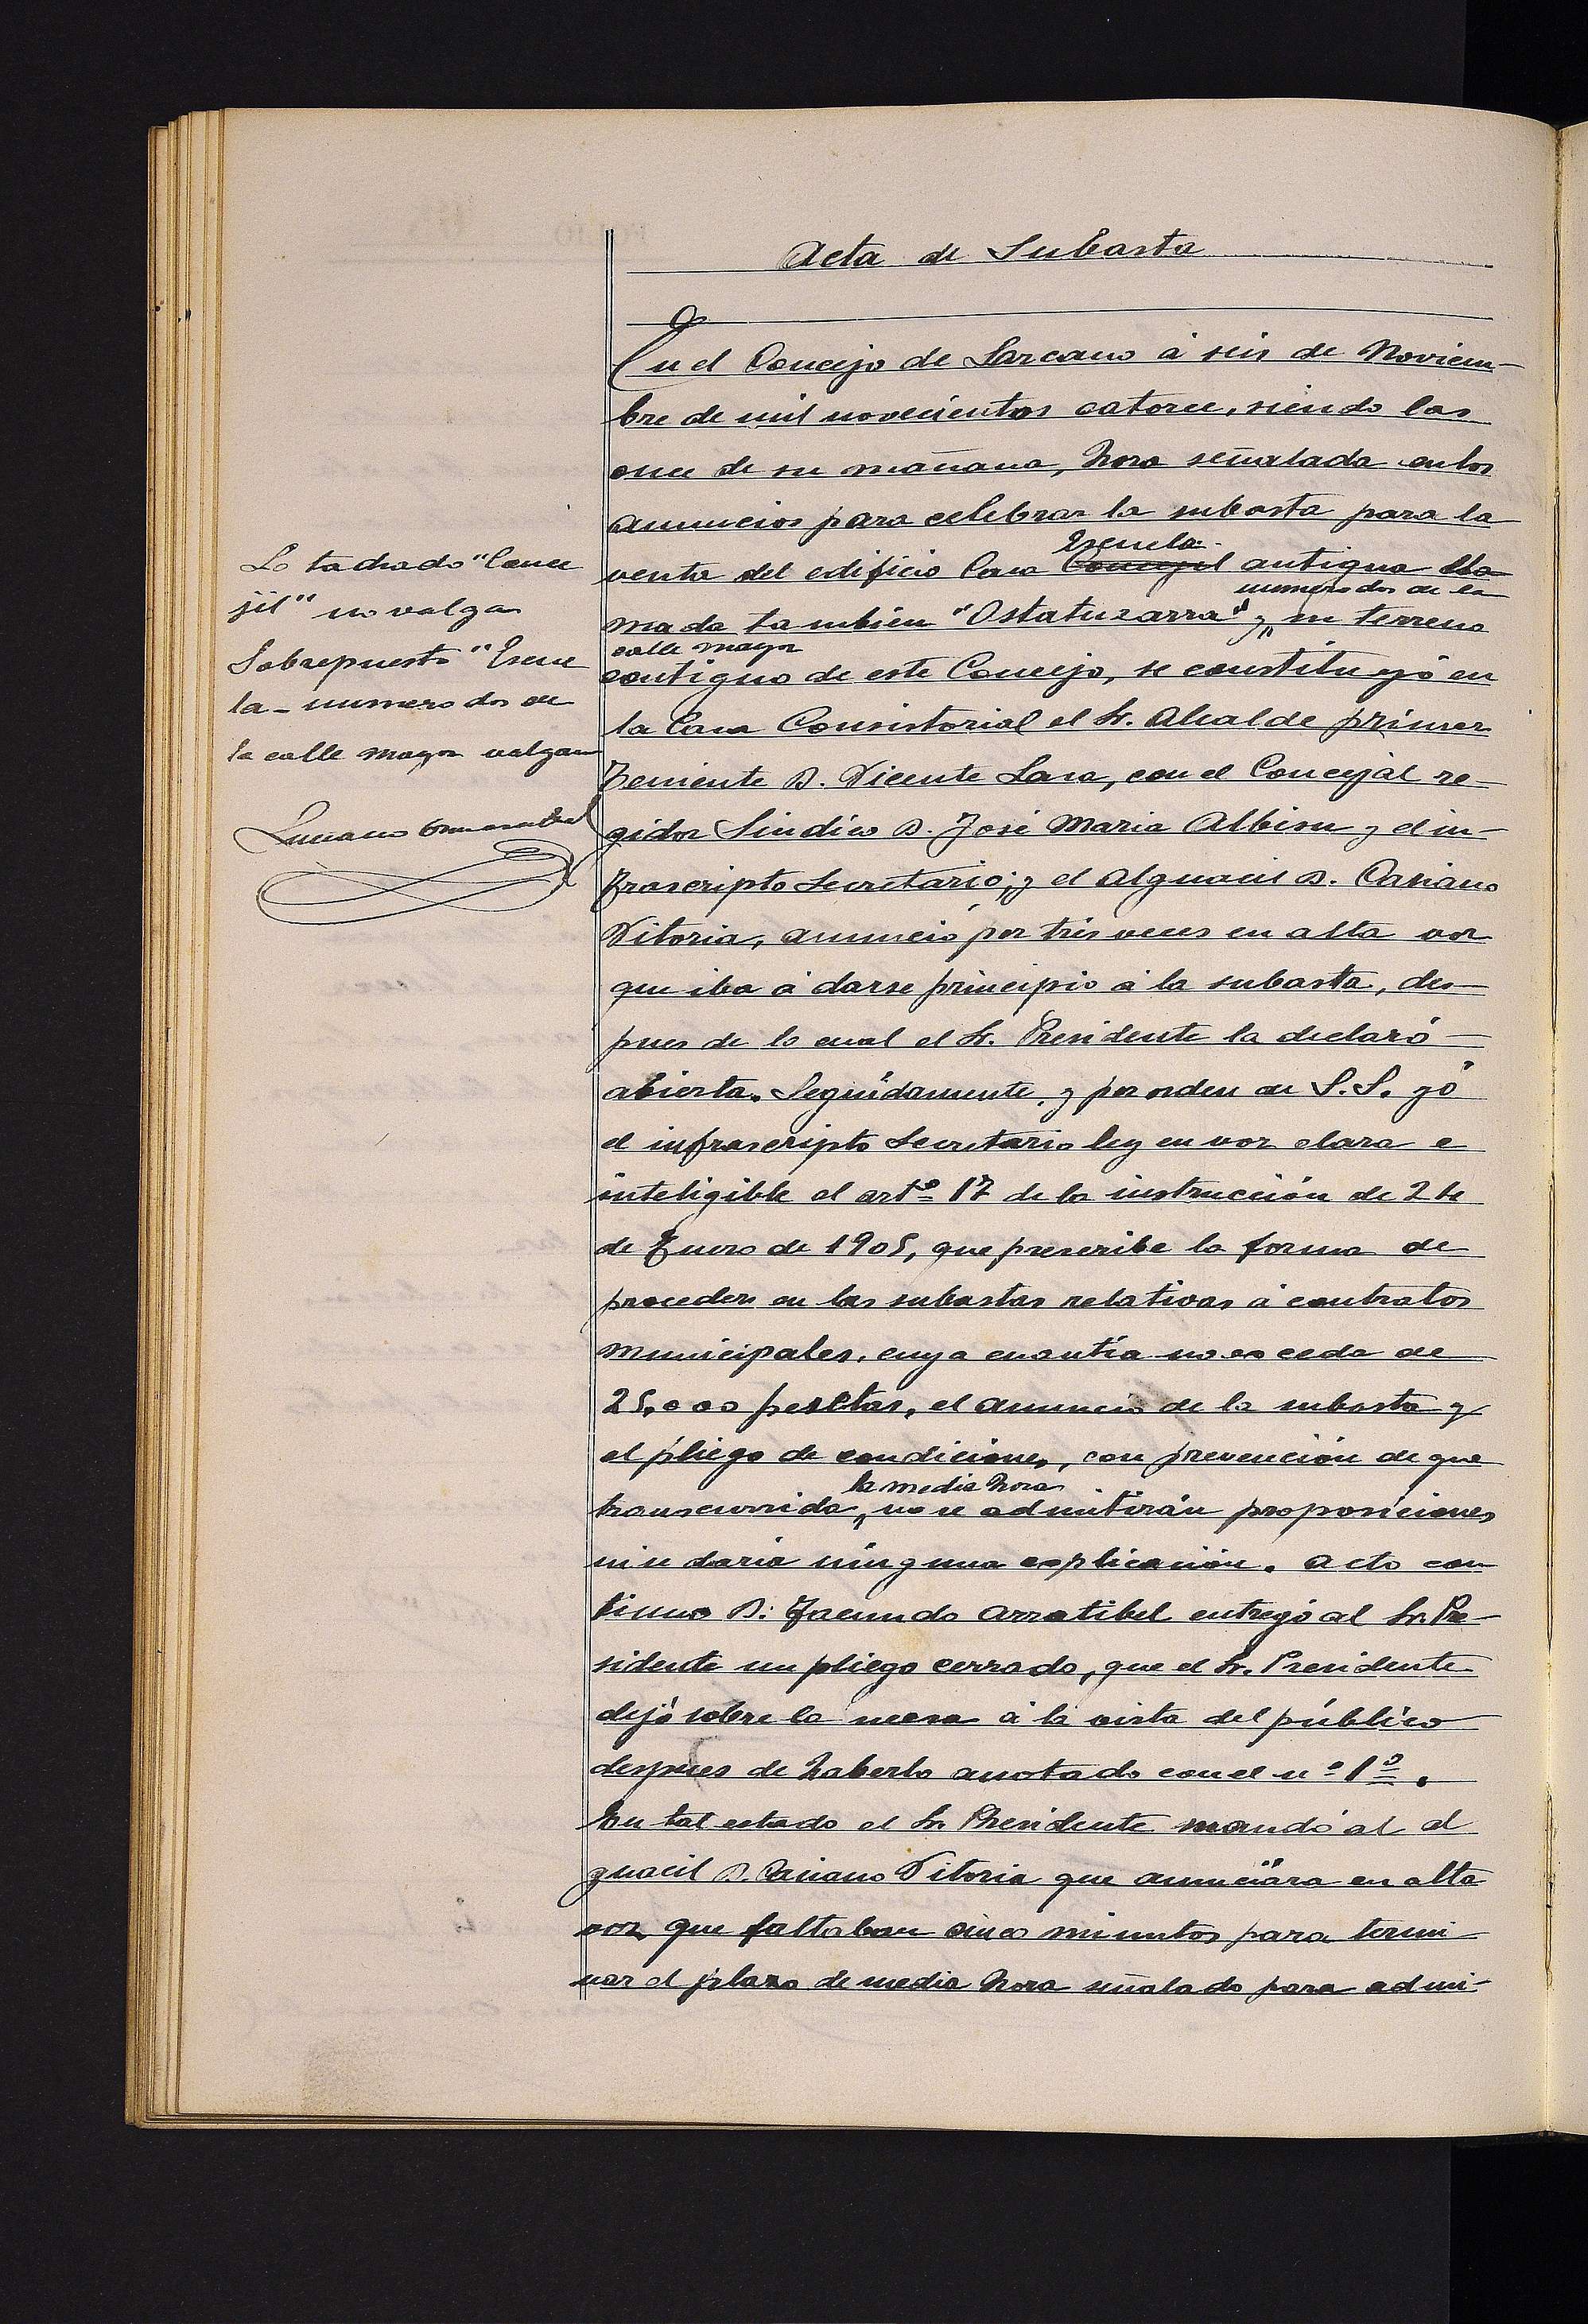 Acta de Subasta
En el Concejo de Lazcano á seis de Noviem-
bre de mil novecientos catorce, siendo las
once de su mañana, hora señalada en los
anuncios para celebrar la subasta para la
Escuela
venta del edificio Casa Concejil antigua lla
numero dos de la
mada tambien "Ostatuzarra" y su terreno
calle mayor
contiguo de este Concejo, se constituyó en
la Casa Consistorial el Sr. Alcalde primer
Teniente D. Vicente Lasa, con el Concejal re-
gidor Sindico D. José Maria Albisu y el in-
frascripto Secretario; y el Alguacil D. Casiano
Vitoria, anunció por tres veces en alta voz
que iba á darse principio á la subasta, des-
pues de lo cual el Sr. Presidente la declaró
abierta. Seguidamente y por orden de S.S. yó
el infrascripto Secretario ley en voz clara e
inteligible el artº 17 de la instrucción de 24
de Enero de 1905, que prescribe la forma de
proceder en las subastas relativas á contratos
municipales, cuya cuantía no exceda de
25,000 pesetas, el anuncio de la subasta y
el pliego de condiciones, con prevención de que
la media hora
transcurrida, no se admitirán proposiciones
ni se daria ninguna explicación. Acto con
tinuo D. Facundo Arratibel entregó al Sr. Pre-
sidente un pliego cerrado, que el Sr. Presidente
dejó sobre la mesa á la vista del público
despues de haberlo anotado con el nº 1º.
En tal estado el Sr. Presidente mandó al al
guacil D. Casiano Vitoria que anunciára en alta
voz que faltaban cinco minutos para termi-
nar el plazo de media hora señalado para admi-
Lo tachado "Conce
jil" no valga
Sobrepuesto "Escue
la - numero dos de
la calle mayor valgan
Luciano